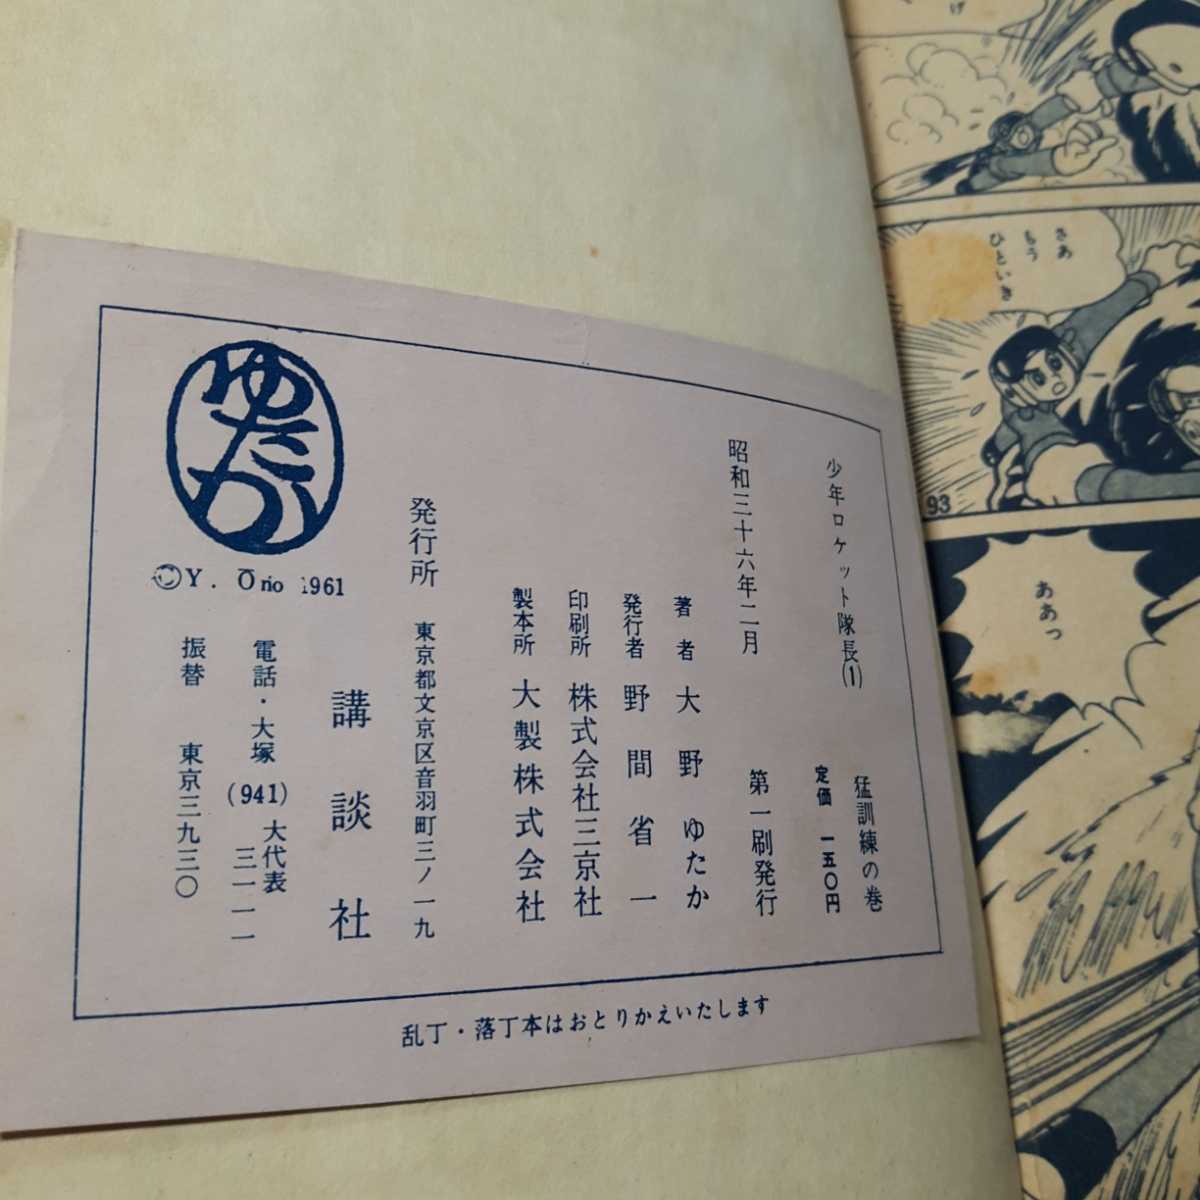 少年ロケット隊長(1) 猛訓練の巻
定価 一五〇円
昭和三十六年二月 第一刷発行
著者 大野ゆたか
発行者 野間省一
印刷所 株式会社三京社
製本所 大製株式会社
発行所 東京都文京区音羽町三ノ一九
講談社
電話・大塚(941)大代表 三一一一
振替 東京三九三〇
ゆたか
©Y. Ōno 1961
乱丁・落丁本はおとりかえいたします
げ
さあ
もう
ひといき
93
ああっ